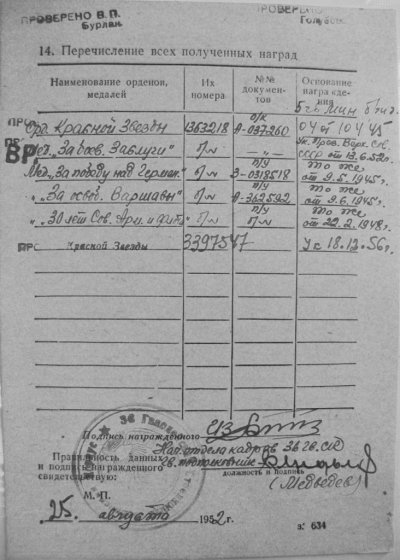 ПРОВЕРЕНО В.П.
Бурлак
ПРОВЕРЕНО
Голубок
14. Перечисление всех полученных наград
Наименование орденов, медалей
Их номера
№№ документов
Основание награждения
Орд. Красной Звезды 1363218 п/к А-037260 04 от 10 4 45
Мед. „За боев. Заслуги" б/н — „ — Ук. През. Верх. Сов. СССР от 13.6.52 г.
Мед. „За победу над Герман." б/н п/у З-0318518 то же от 9.5.1945 г.
„ „За освоб. Варшавы" б/н п/у А-362592 то же от 9.6.1945 г.
„ „30 лет Сов. Арм. и флота" б/н п/у б/н то же от 22.2.1948 г.
Красной Звезды 3397547 Ук 18.12.56 г.
Подпись награжденного
Нач. отдела кадров 36 гв. сд
Правильность данных
и подписи награжденного
свидетельствую:
гв. подполковник
должность и подпись
(Медведев)
М. П.
„25„ августа 1952 г.
з. 634